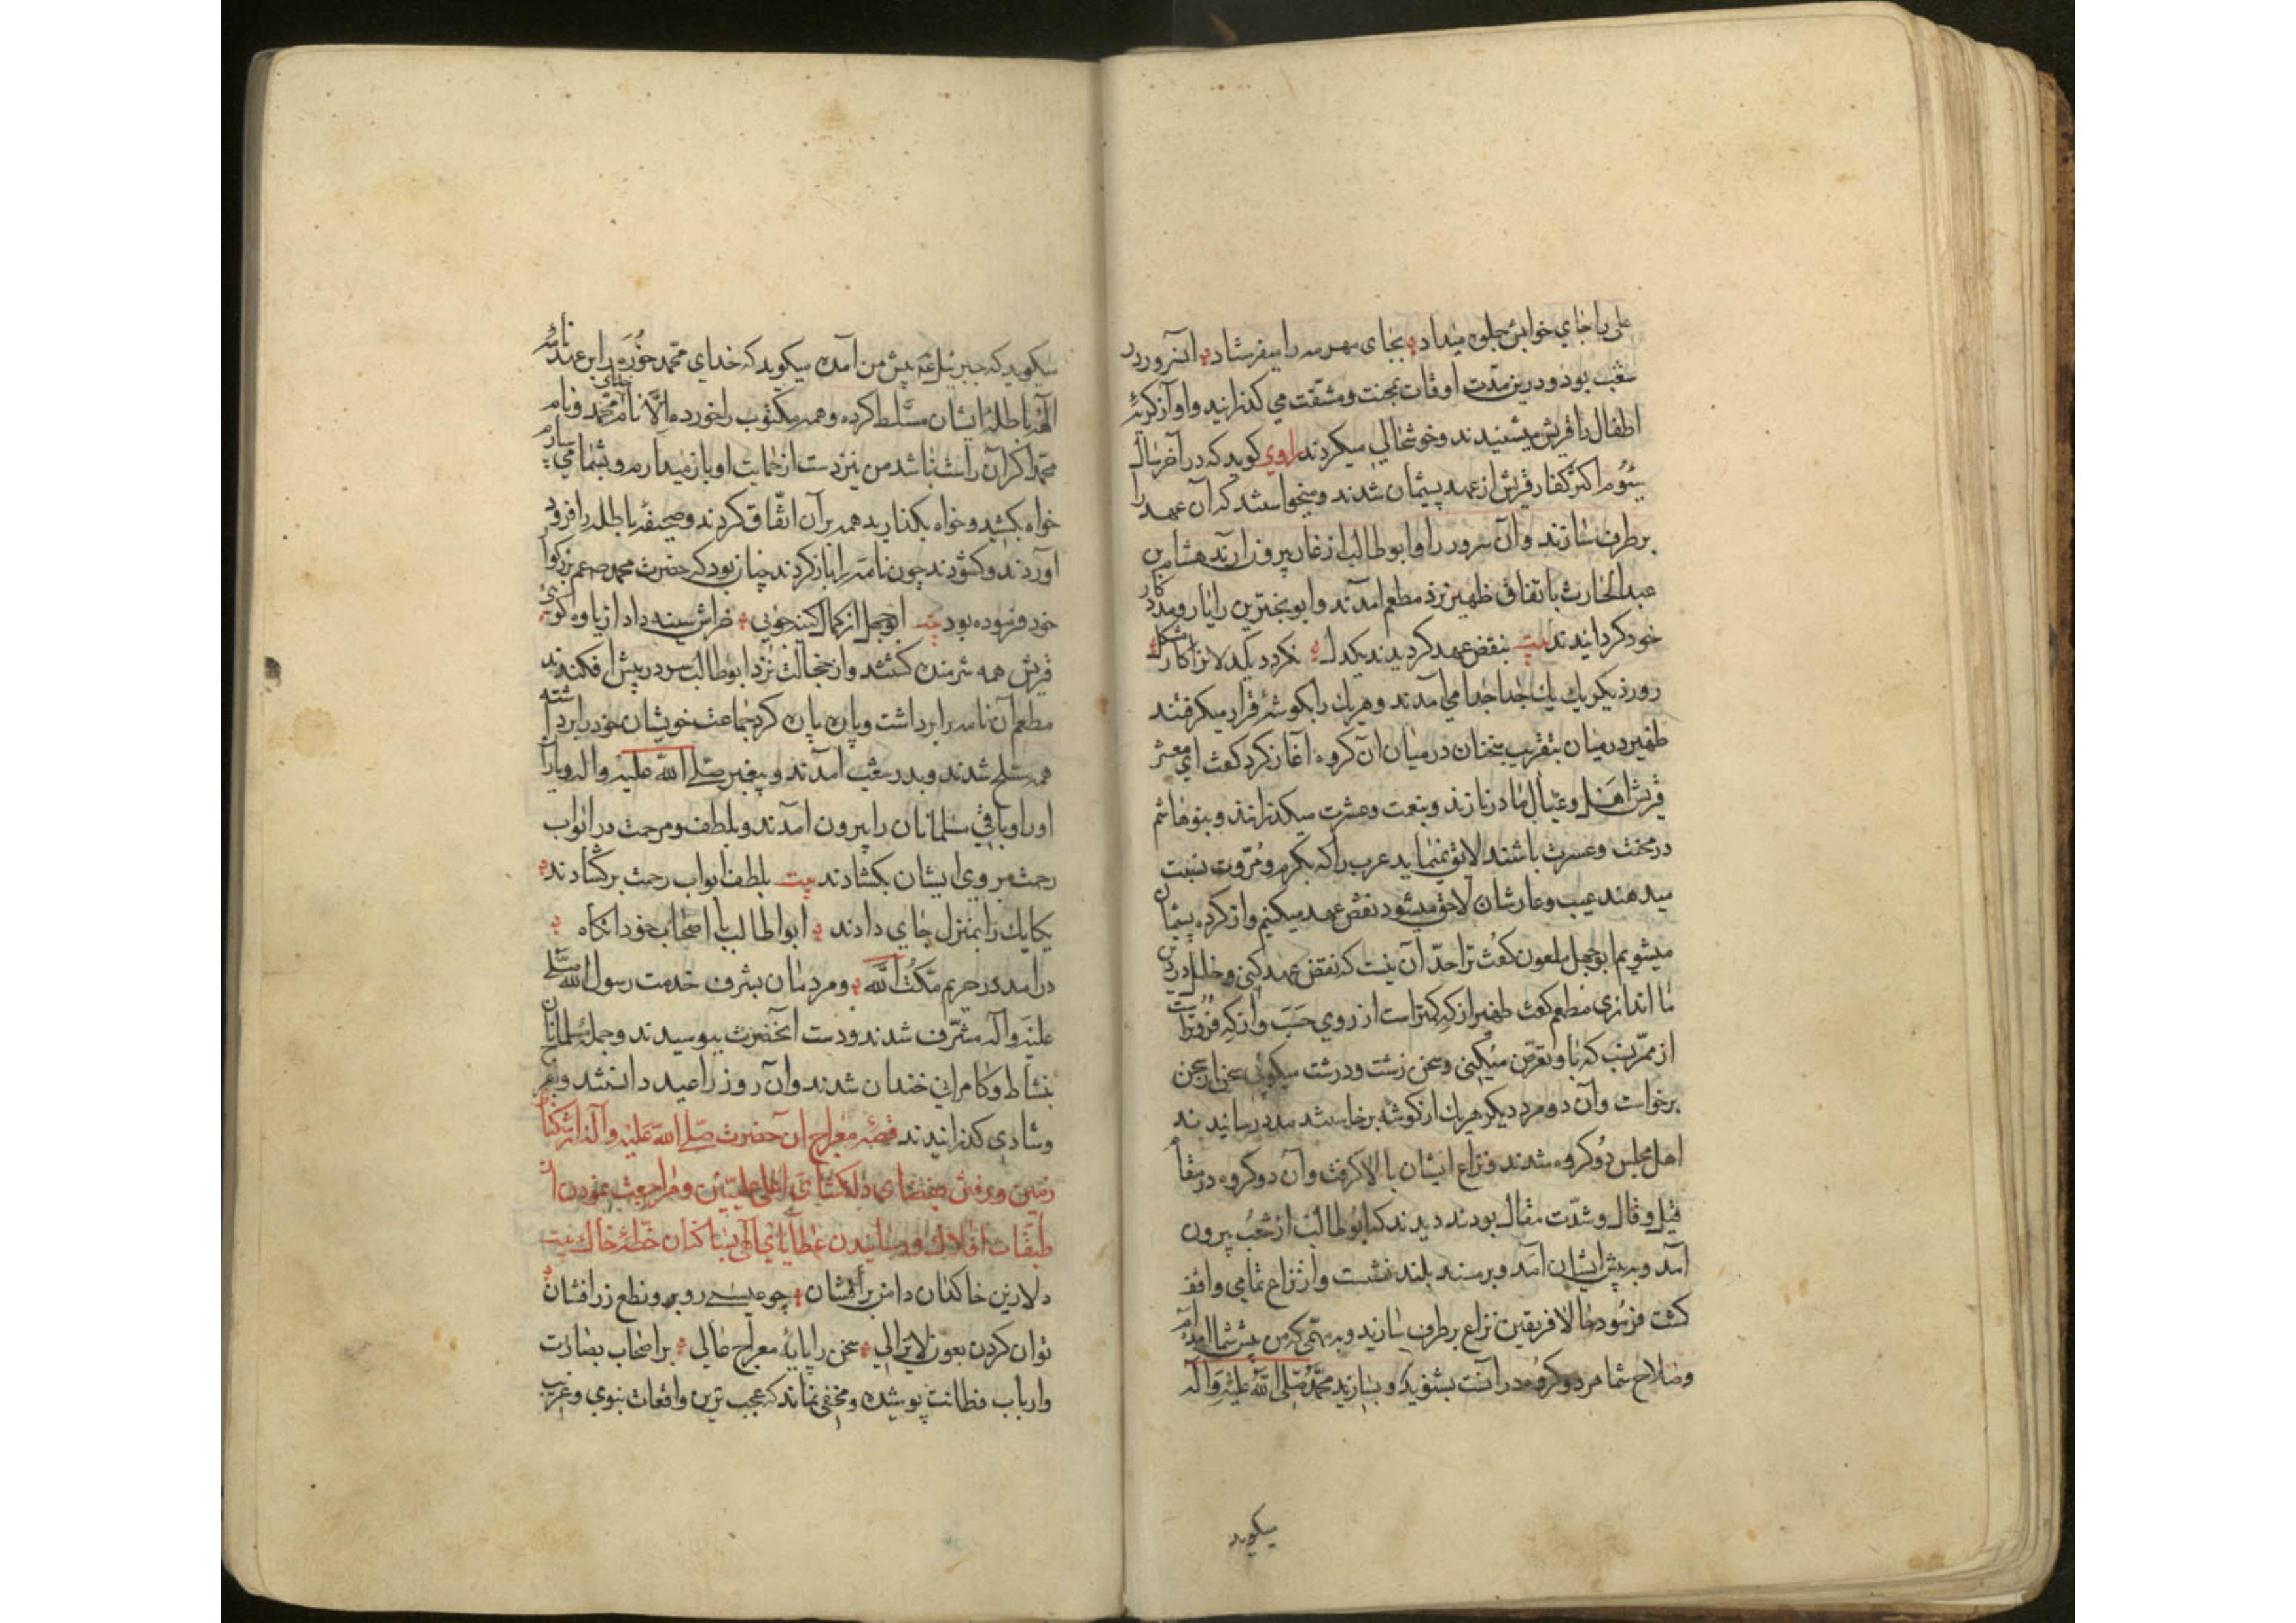 علی را جای خوابش جلوه میداد بجای مهر مه را میفرستاد آنسرور در
شعب بود و درین مدّت اوقات بمحنت و مشقّت می گذرانید و آواز گریهٔ
اطفال را قریش میشنیدند و خوشحالی میکردند راوی گوید که در آخر سال
سیّوم اکثر کفار قریش از عهد پشیمان شدند و میخواستند که آن عهد را
بر طرف سازند و آن سرور را و ابوطالب از غار بیرون آرند هشام بن
عبدالحارث باتفاق ظهیر نزد مطعم آمدند و ابو بختری را یار و مددکار
خود گردانیدند بیت بنقض عهد گردیدند یکدل نگردد یکدلانرا کار مشکل
روز دیگر یك یك جدا جدا می آمدند و هر یك را بگوشه قرار میگرفتند
ظهیر در میان بتقریب سخنان در میان آن گروه آغاز کرد گفت ای معشر
قریش اهل و عیال ما در نازند و بنعمت و عشرت میگذرانند و بنوهاشم
در محنت و عسرت باشند لایق نمینماید عرب را که بکرم و مُرّوت نسبت
میدهند عیب و عار شان لاحق میشود نقض عهد میکنیم و از کرده پشیمان
میشویم ابوجهل ملعون گفت ترا حدّ آن نیست که نقض عهد کنی و خلل در دین
ما اندازی مطعم گفت ظهیر از که کمتر است از روی حَسَب و از که فروتر است
از ممرّ نسب که با او تعرّض میکنی و سخن زشت و درشت میگوئی سخن از سخن
برخواست و آن دو مرد دیگر هر یك از گوشه برخاستند مدد رسانیدند
اهل مجلس دُو گروه شدند و نزاع ایشان بالا گرفت و آن دو گروه در مقام
قیل و قال و شدّت مقال بودند دیدند که ابوطالب از شعب بیرون
آمد و به پیش ایشان آمد و بر مسند بلند نشست و از نزاع تمامی واقف
گشت فرمُود حالا فریقین نزاع بر طرف سازند و به مهمّی که من پیش شما آمده ام
و صلاح شما هر دو گروه در آنست بشنوید و بسازید محمّد صلّی اللّه علیه و آله
میگوید
میگوید که جبرئیل پیش من آمده میگوید که خدای محمّد خُورَه را بر عهدنامهٔ
باطلهٔ ایشان مسّلط کرده و همه مکتوب را خورده اِلاَّ نام محمّد و نام خدای
محمّد اکر آن راست نباشد من نیز دست از حمایت او باز میدارم و بشما می سپارم
خواه بکشید و خواه بکذارید همه بر آن اتّفاق کردند و صحیفهٔ باطله را فرود
آوردند و کشودند چون نامه را باز کردند چنان بود که حضرت محمد صلعم بزرکوار
خود فرموده بود بیت ابوجهل از کمال کینه جوئی خراش سینه داد از یاوه کوئی
قریش همه شرمنده کشتند و از خجالت نزد ابوطالب سر در پیش افکندند
مطعم آن نامه را برداشت و پاره پاره کرد جماعت خویشان خود را برداشته
همه مسلح شدند و بدر شعب آمدند و پیغمبر صلّی اللّه علیه و اله و یاران
او را و باقی مسلمانان را بیرون آمدند و بلطف و مرحمت در ابواب
رحمت بر روی ایشان بکشادند بیت بلطف ابواب رحمت برکشادند
یکایك را بمنزل جای دادند ابواطالب با اصحاب خود انکاه
درآمد در حریم مکّۀ اللَّه و مردمان بشرف خدمت رسول اللّه صلّی
علیه و آله مشّرف شدند و دست آنحضرت ببوسیدند و جمله مسلمانان
بنشاط و کامرانی خندان شدند و آن روز را عید دانستند و بفرح
و شادی کذرانیدند قصّهٔ معراج ان حضرت صلّی اللّه علیه و آله از تنکنای
زمین و رفتن بفضای دلکشای اعلی علیّین و مراجعت نمودن از
طبقات افلاك و رسانیدن عطایای آلهی بساکنان خطهٔ خاك بیت
دلا زین خاکدان دامن برافشان چو عیسی رو برو نطع زر افشان
توان کردن بعون لایزالی سخن را پایهٔ معراج عالی بر اصحاب بصارت
و ارباب فطانت پوشیده و مخفی نماند که عجب ترین واقعات نبوی و غریب